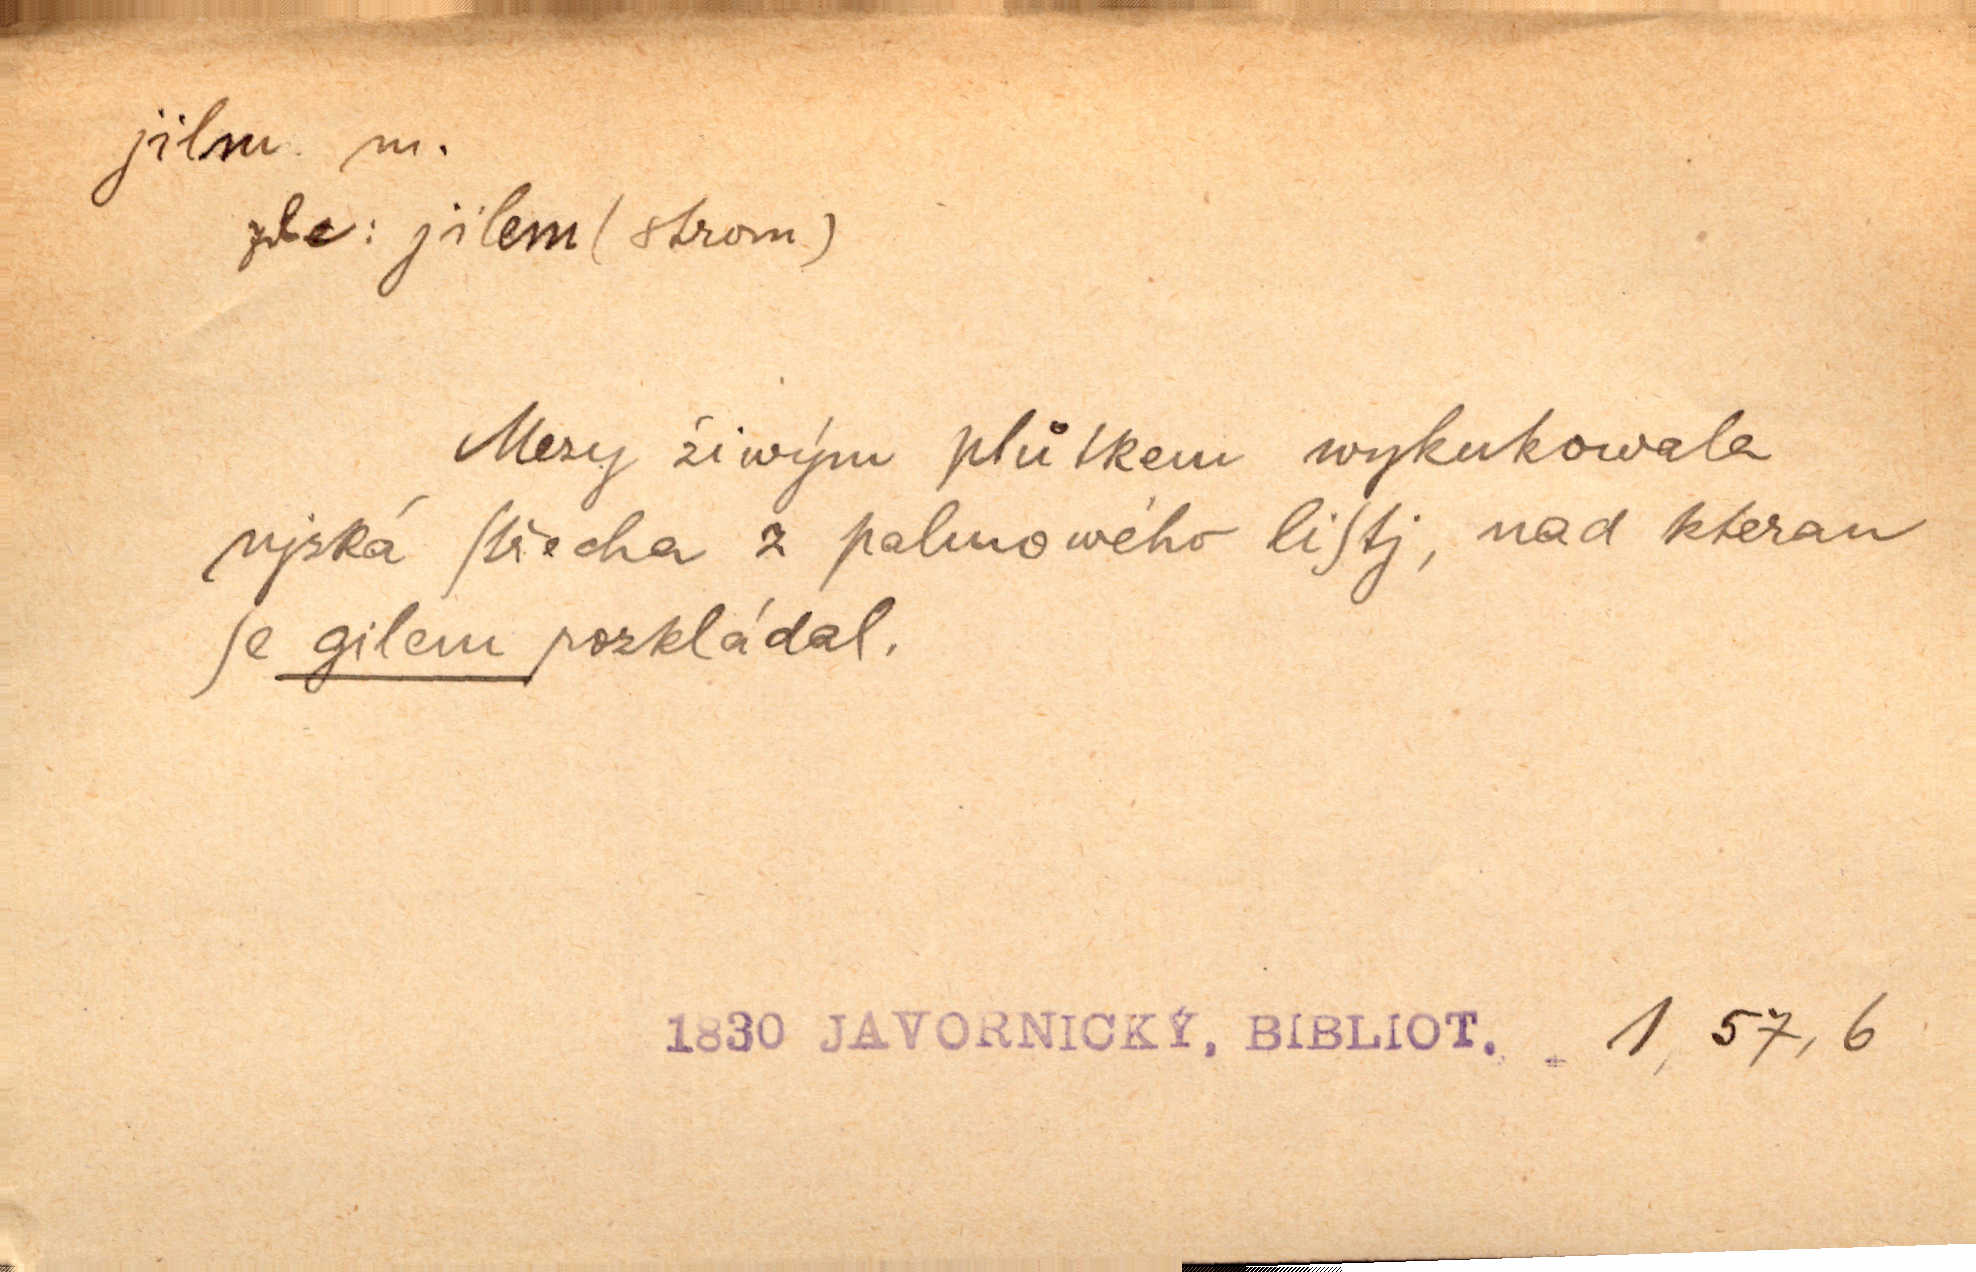 jilm m.
zde: jilem (strom)
Mezy žiwým plůtkem wykukowala
njzká ſtřecha z palmowého liſtj, nad kterau
ſe gilem rozkládal.
1830 JAVORNICKÝ, BIBLIOT. 1, 57, 6